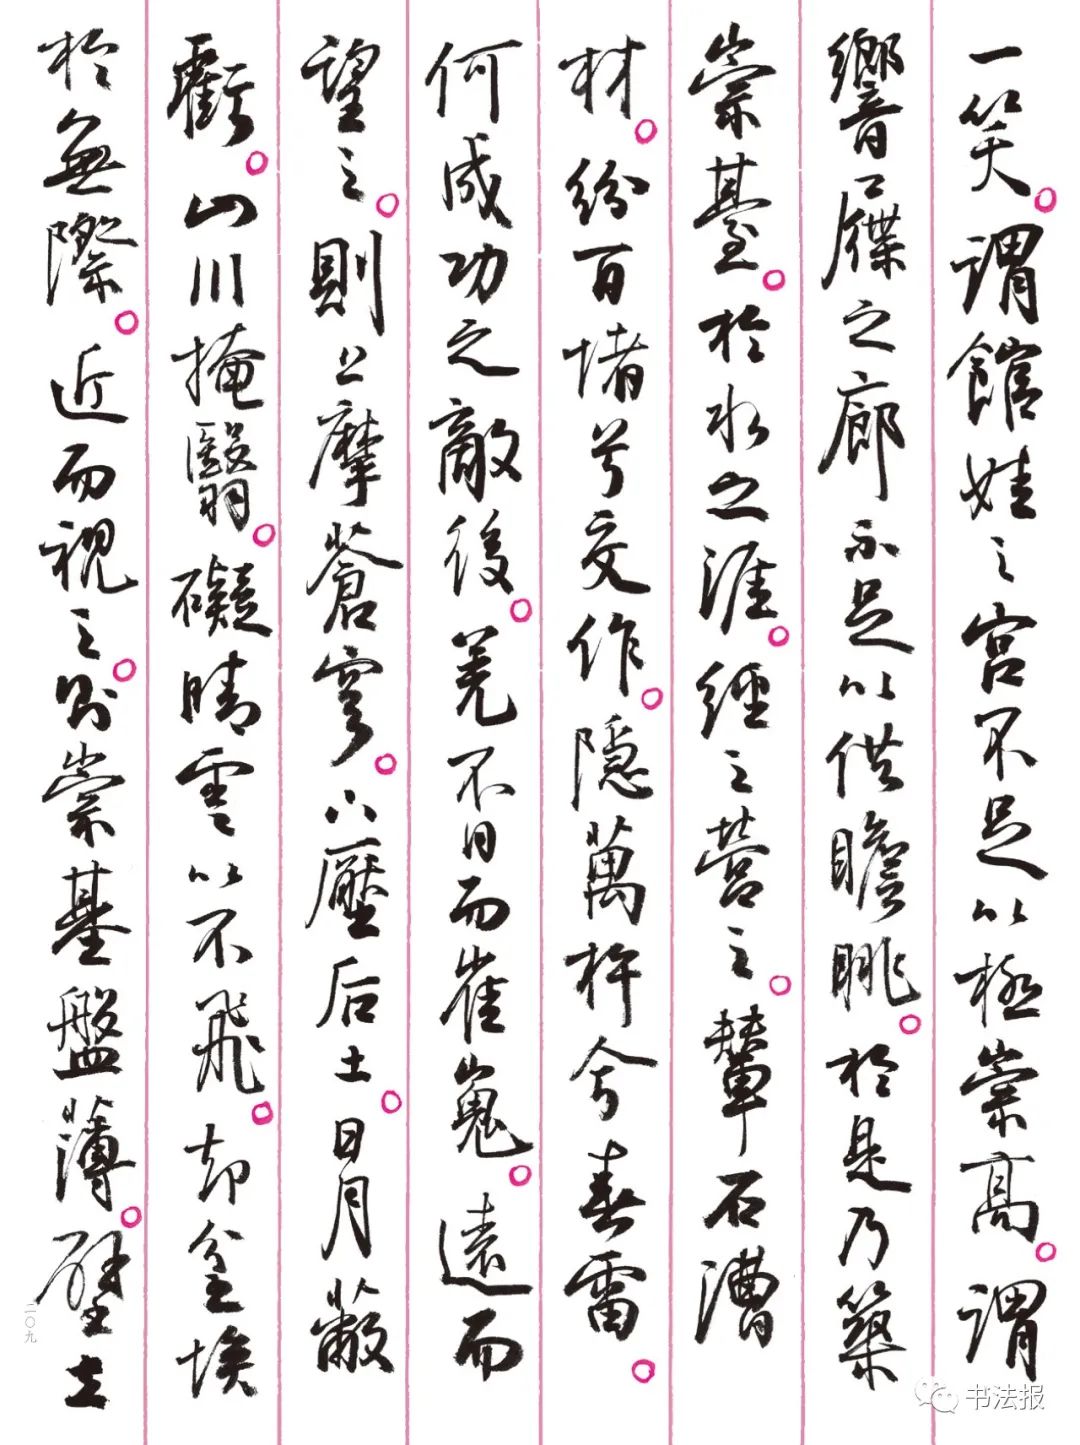 一笑。謂館娃之宮不足以極崇高。謂
響屧之廊不足以供瞻眺。於是乃築
崇臺。於水之涯。經之營之。輦石漕
材。紛百堵兮交作。隱萬杵兮春雷。
何成功之敵後。羌不日而崔嵬。遠而
望之。則上摩蒼穹。下壓后土。日月蔽
虧。山川掩翳。礙晴雲以不飛。却坌埃
於無際。近而視之。則崇基盤薄。壁立
二〇九
书法报